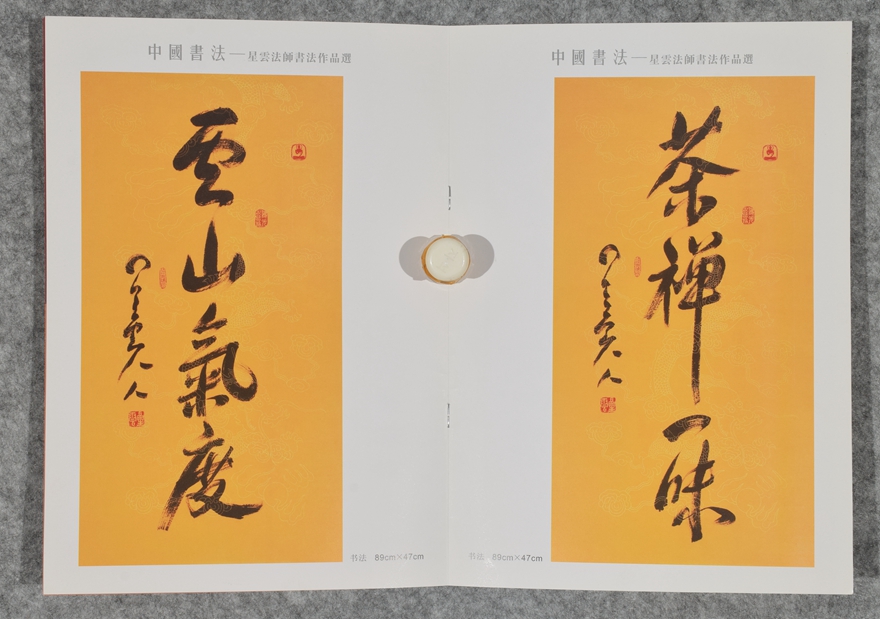 中國書法—星雲法師書法作品選
雲山氣度
书法 89cm×47cm
中國書法—星雲法師書法作品選
茶禪一味
书法 89cm×47cm